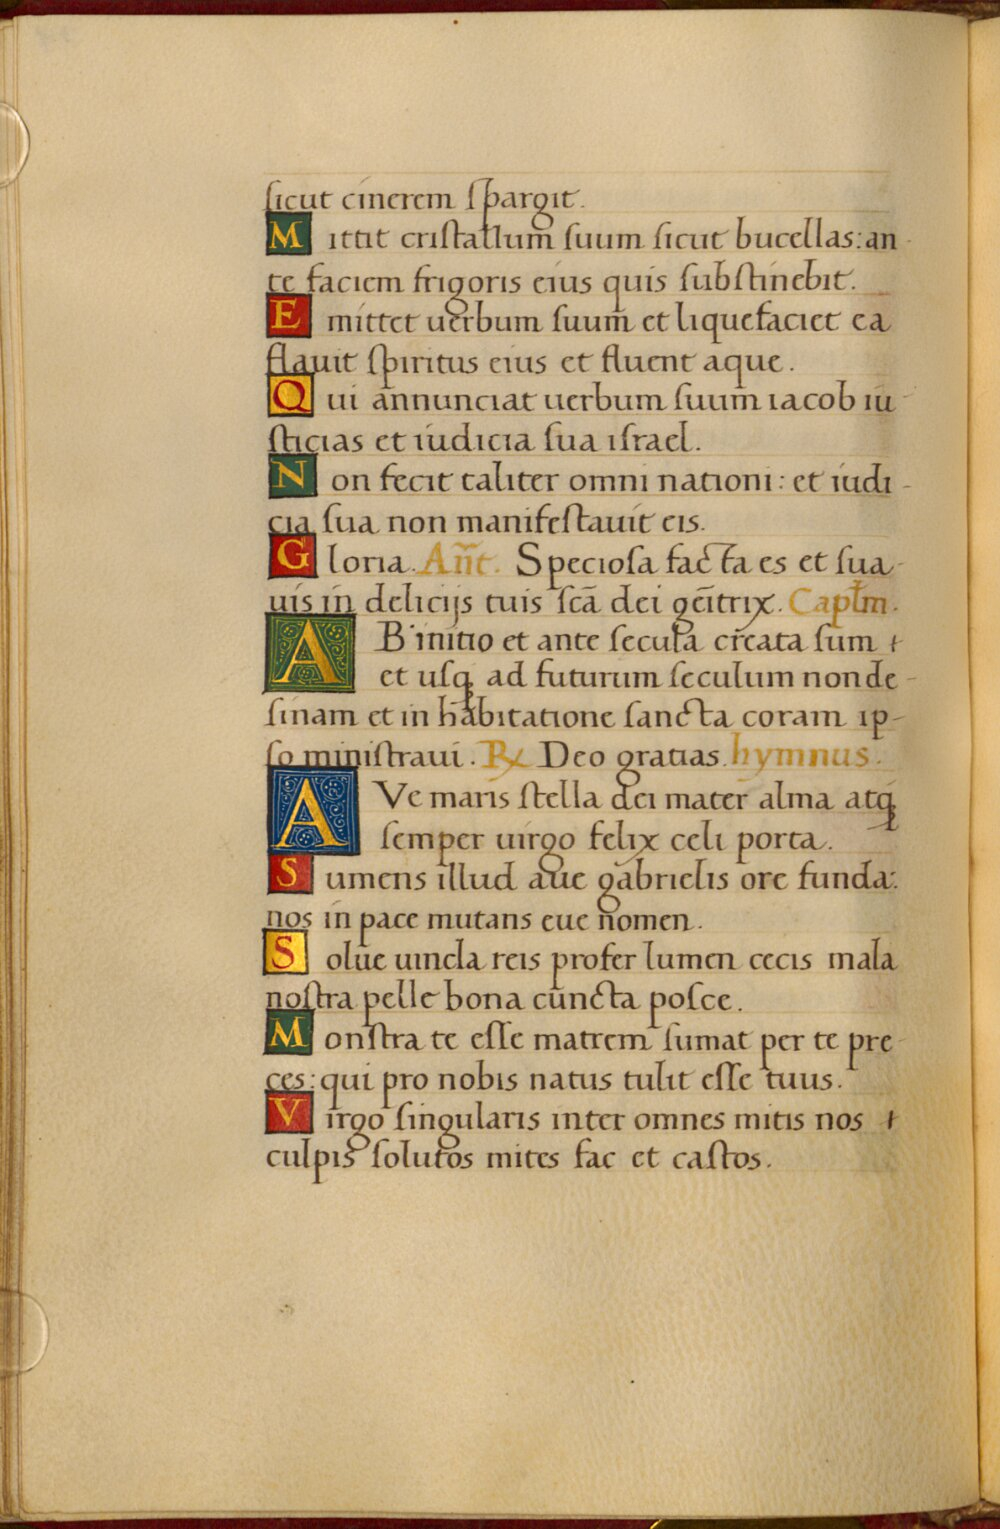 ſicut cinerem ſpargit.
Mittit criſtallum ſuum ſicut bucellas: an-
te faciem frigoris eius quis ſubſtinebit.
Emittet uerbum ſuum et liquefaciet ea
flauit ſpiritus eius et fluent aque.
Qui annunciat uerbum ſuum iacob iu
ſticias et iudicia ſua iſrael.
Non fecit taliter omni nationi: et iudi-
cia ſua non manifeſtauit eis.
Gloria. Añt. Specioſa facta es et ſua-
uis in delicijs tuis ſcã dei geñitrix. Capłm.
AB initio et ante ſecula creata ſum
et uſqꝫ ad futurum ſeculum non de-
ſinam et in habitatione ſancta coram ip-
ſo miniſtraui. ℞ Deo gratias. hymnus.
AVe maris ſtella dei mater alma atqꝫ
ſemper uirgo felix celi porta.
Sumens illud aue gabrielis ore funda:
nos in pace mutans eue nomen.
Solue uincla reis profer lumen cecis mala
noſtra pelle bona cuncta poſce.
Monſtra te eſſe matrem ſumat per te pre-
ces: qui pro nobis natus tulit eſſe tuus.
Virgo ſingularis inter omnes mitis nos
culpis ſolutos mites fac et caſtos.